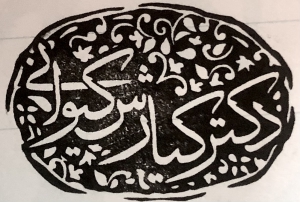 دکتر کیارش کیوانی